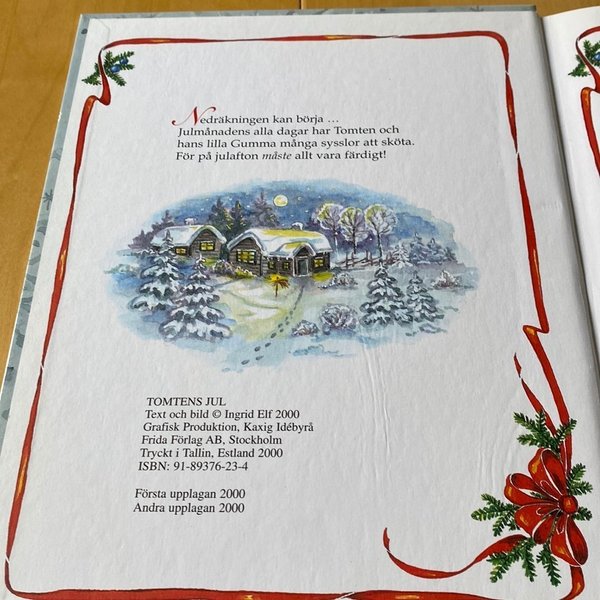 Nedräkningen kan börja ...
Julmånadens alla dagar har Tomten och
hans lilla Gumma många sysslor att sköta.
För på julafton måste allt vara färdigt!
TOMTENS JUL
Text och bild © Ingrid Elf 2000
Grafisk Produktion, Kaxig Idébyrå
Frida Förlag AB, Stockholm
Tryckt i Tallin, Estland 2000
ISBN: 91-89376-23-4
Första upplagan 2000
Andra upplagan 2000